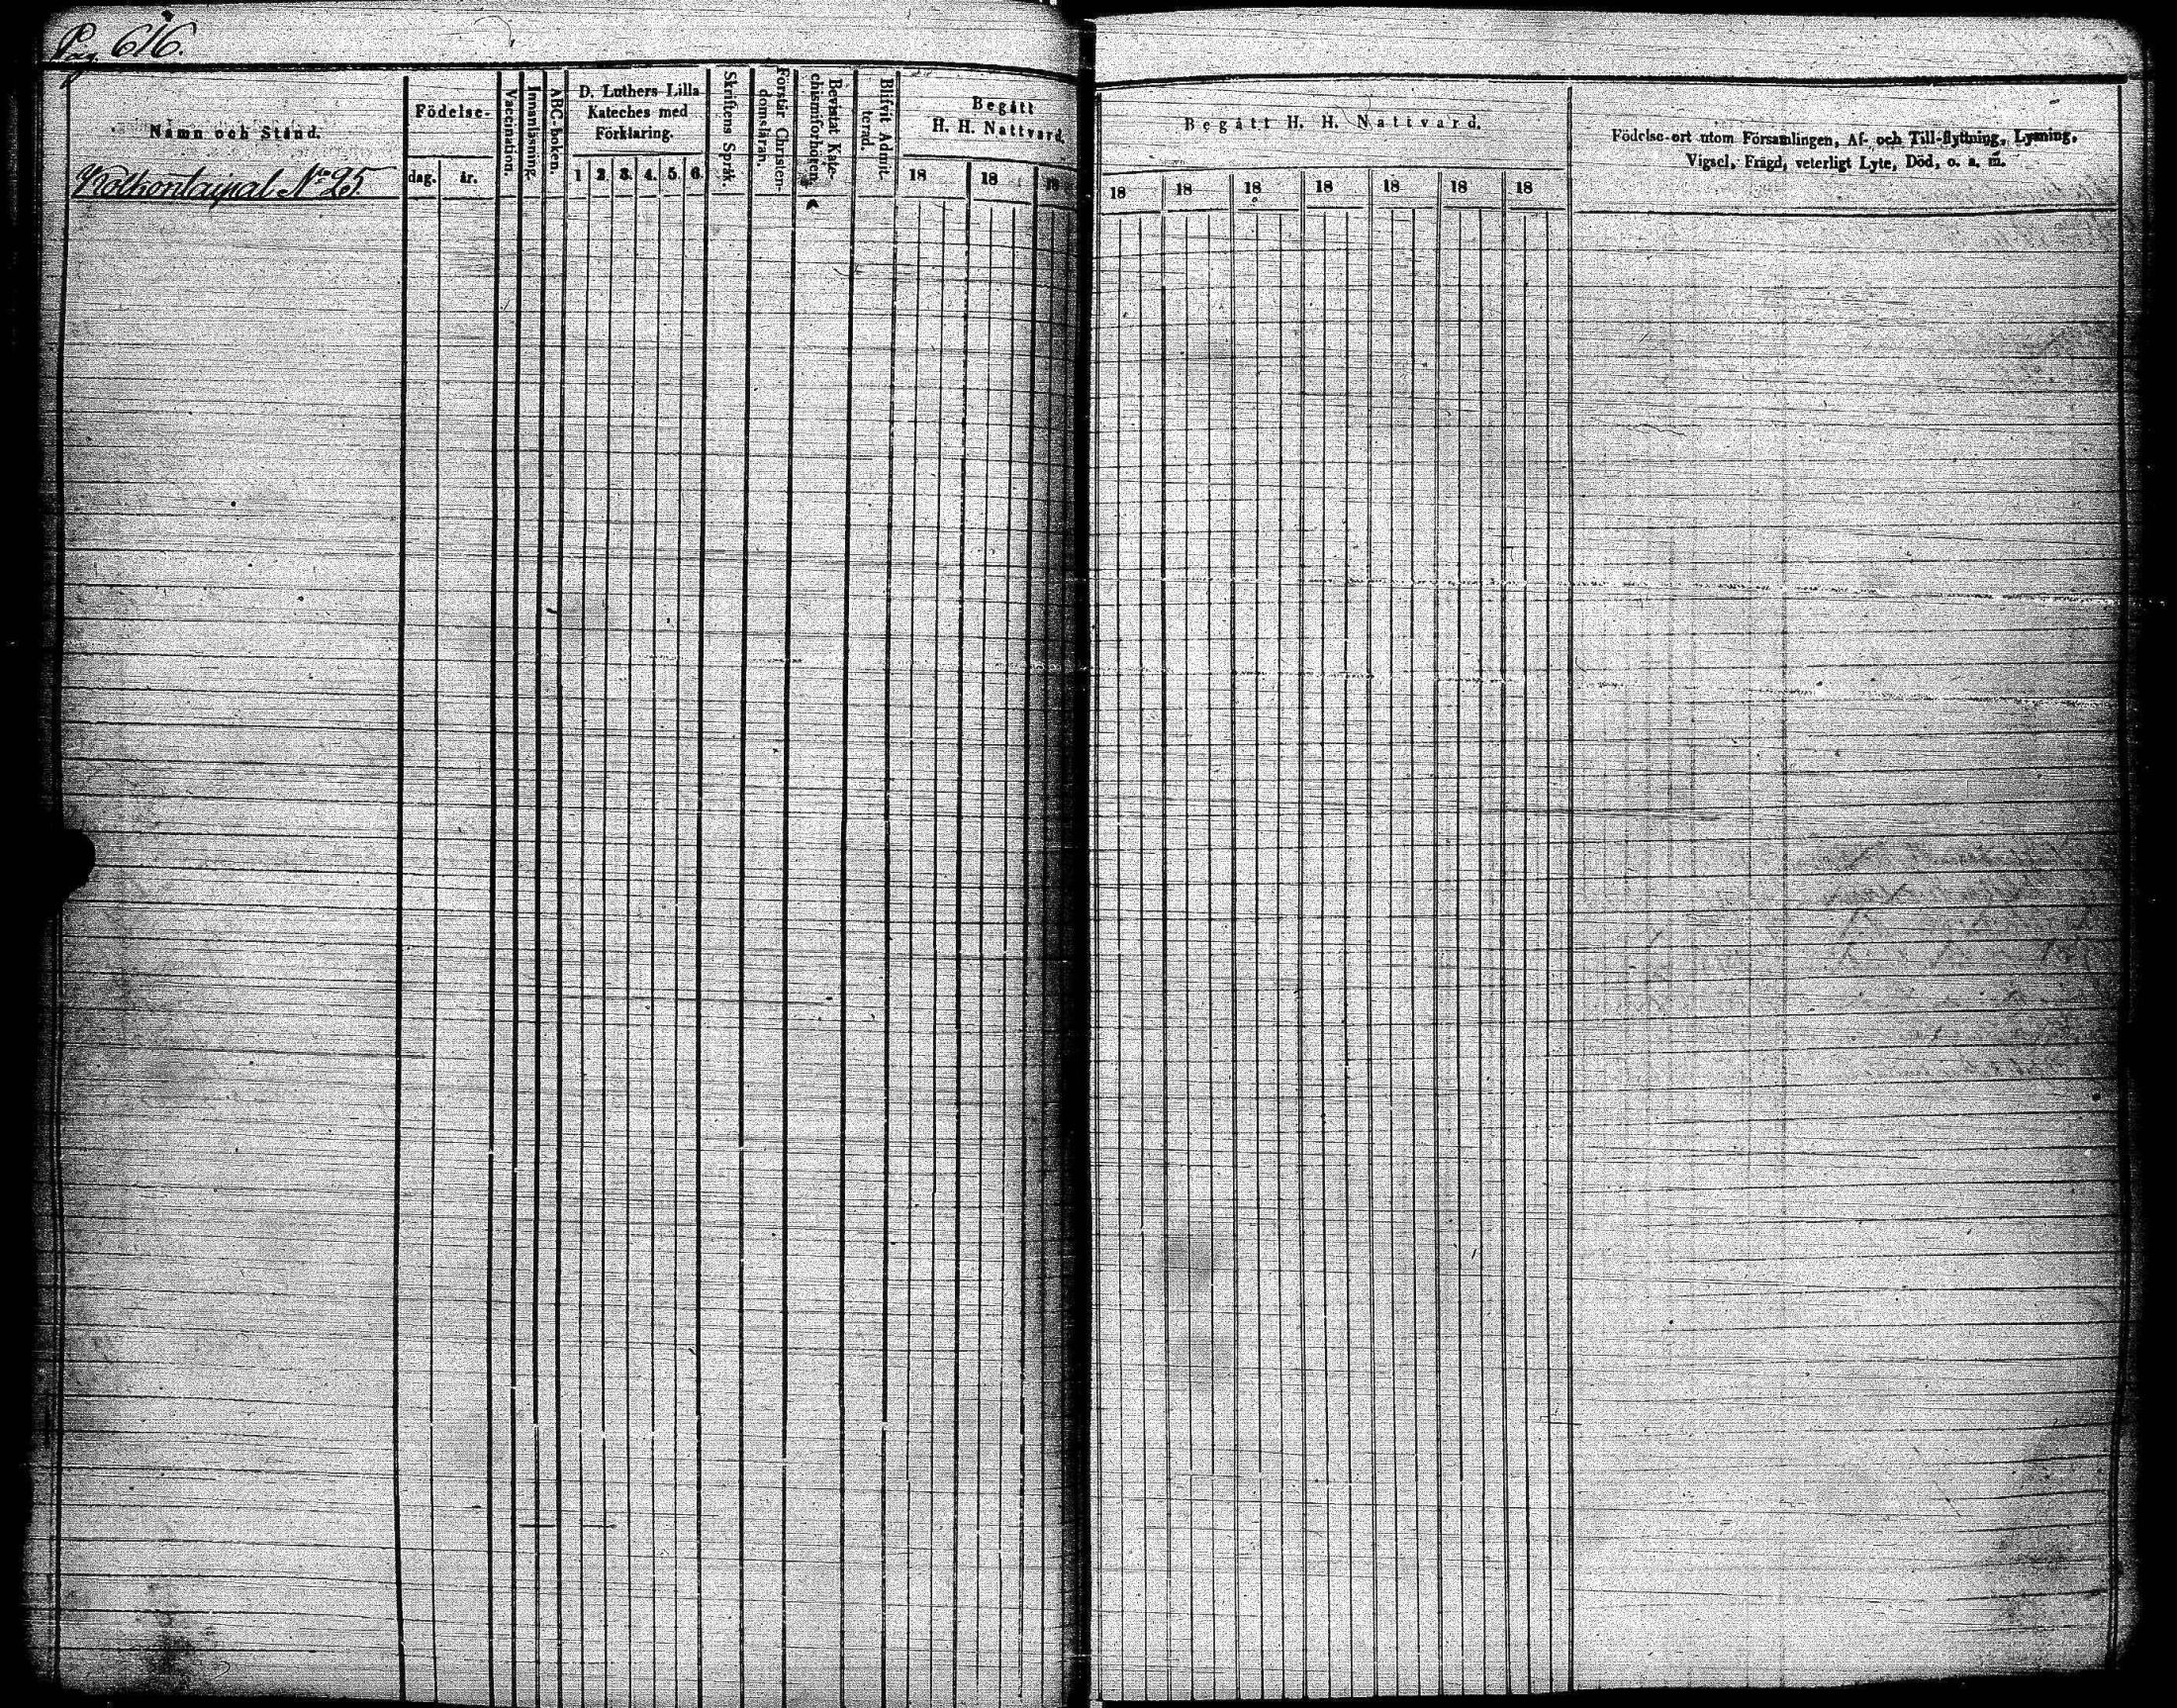 Pag. 616.
Namn och Stånd.
Kolkontaipal No 25.
Födelse-
dag. år.
Vaccination.
Innanläsning.
ABC-boken.
D. Luthers Lilla
Kateches med
Förklaring.
1 2. 3. 4. 5. 6.
Skriftens Språk.
Förstår Christen-
domsläran.
Bevistat Kate-
chismiförhören.
Blifvit Admit-
terad.
Begått
H. H. Nattvard.
18 18 18
Begått H. H. Nattvard.
18 18 18 18 18 18 18
Födelse-ort utom Församlingen, Af- och Till-flyttning, Lysning,
Vigsel, Frägd, veterligt Lyte, Död, o. a. m̃.